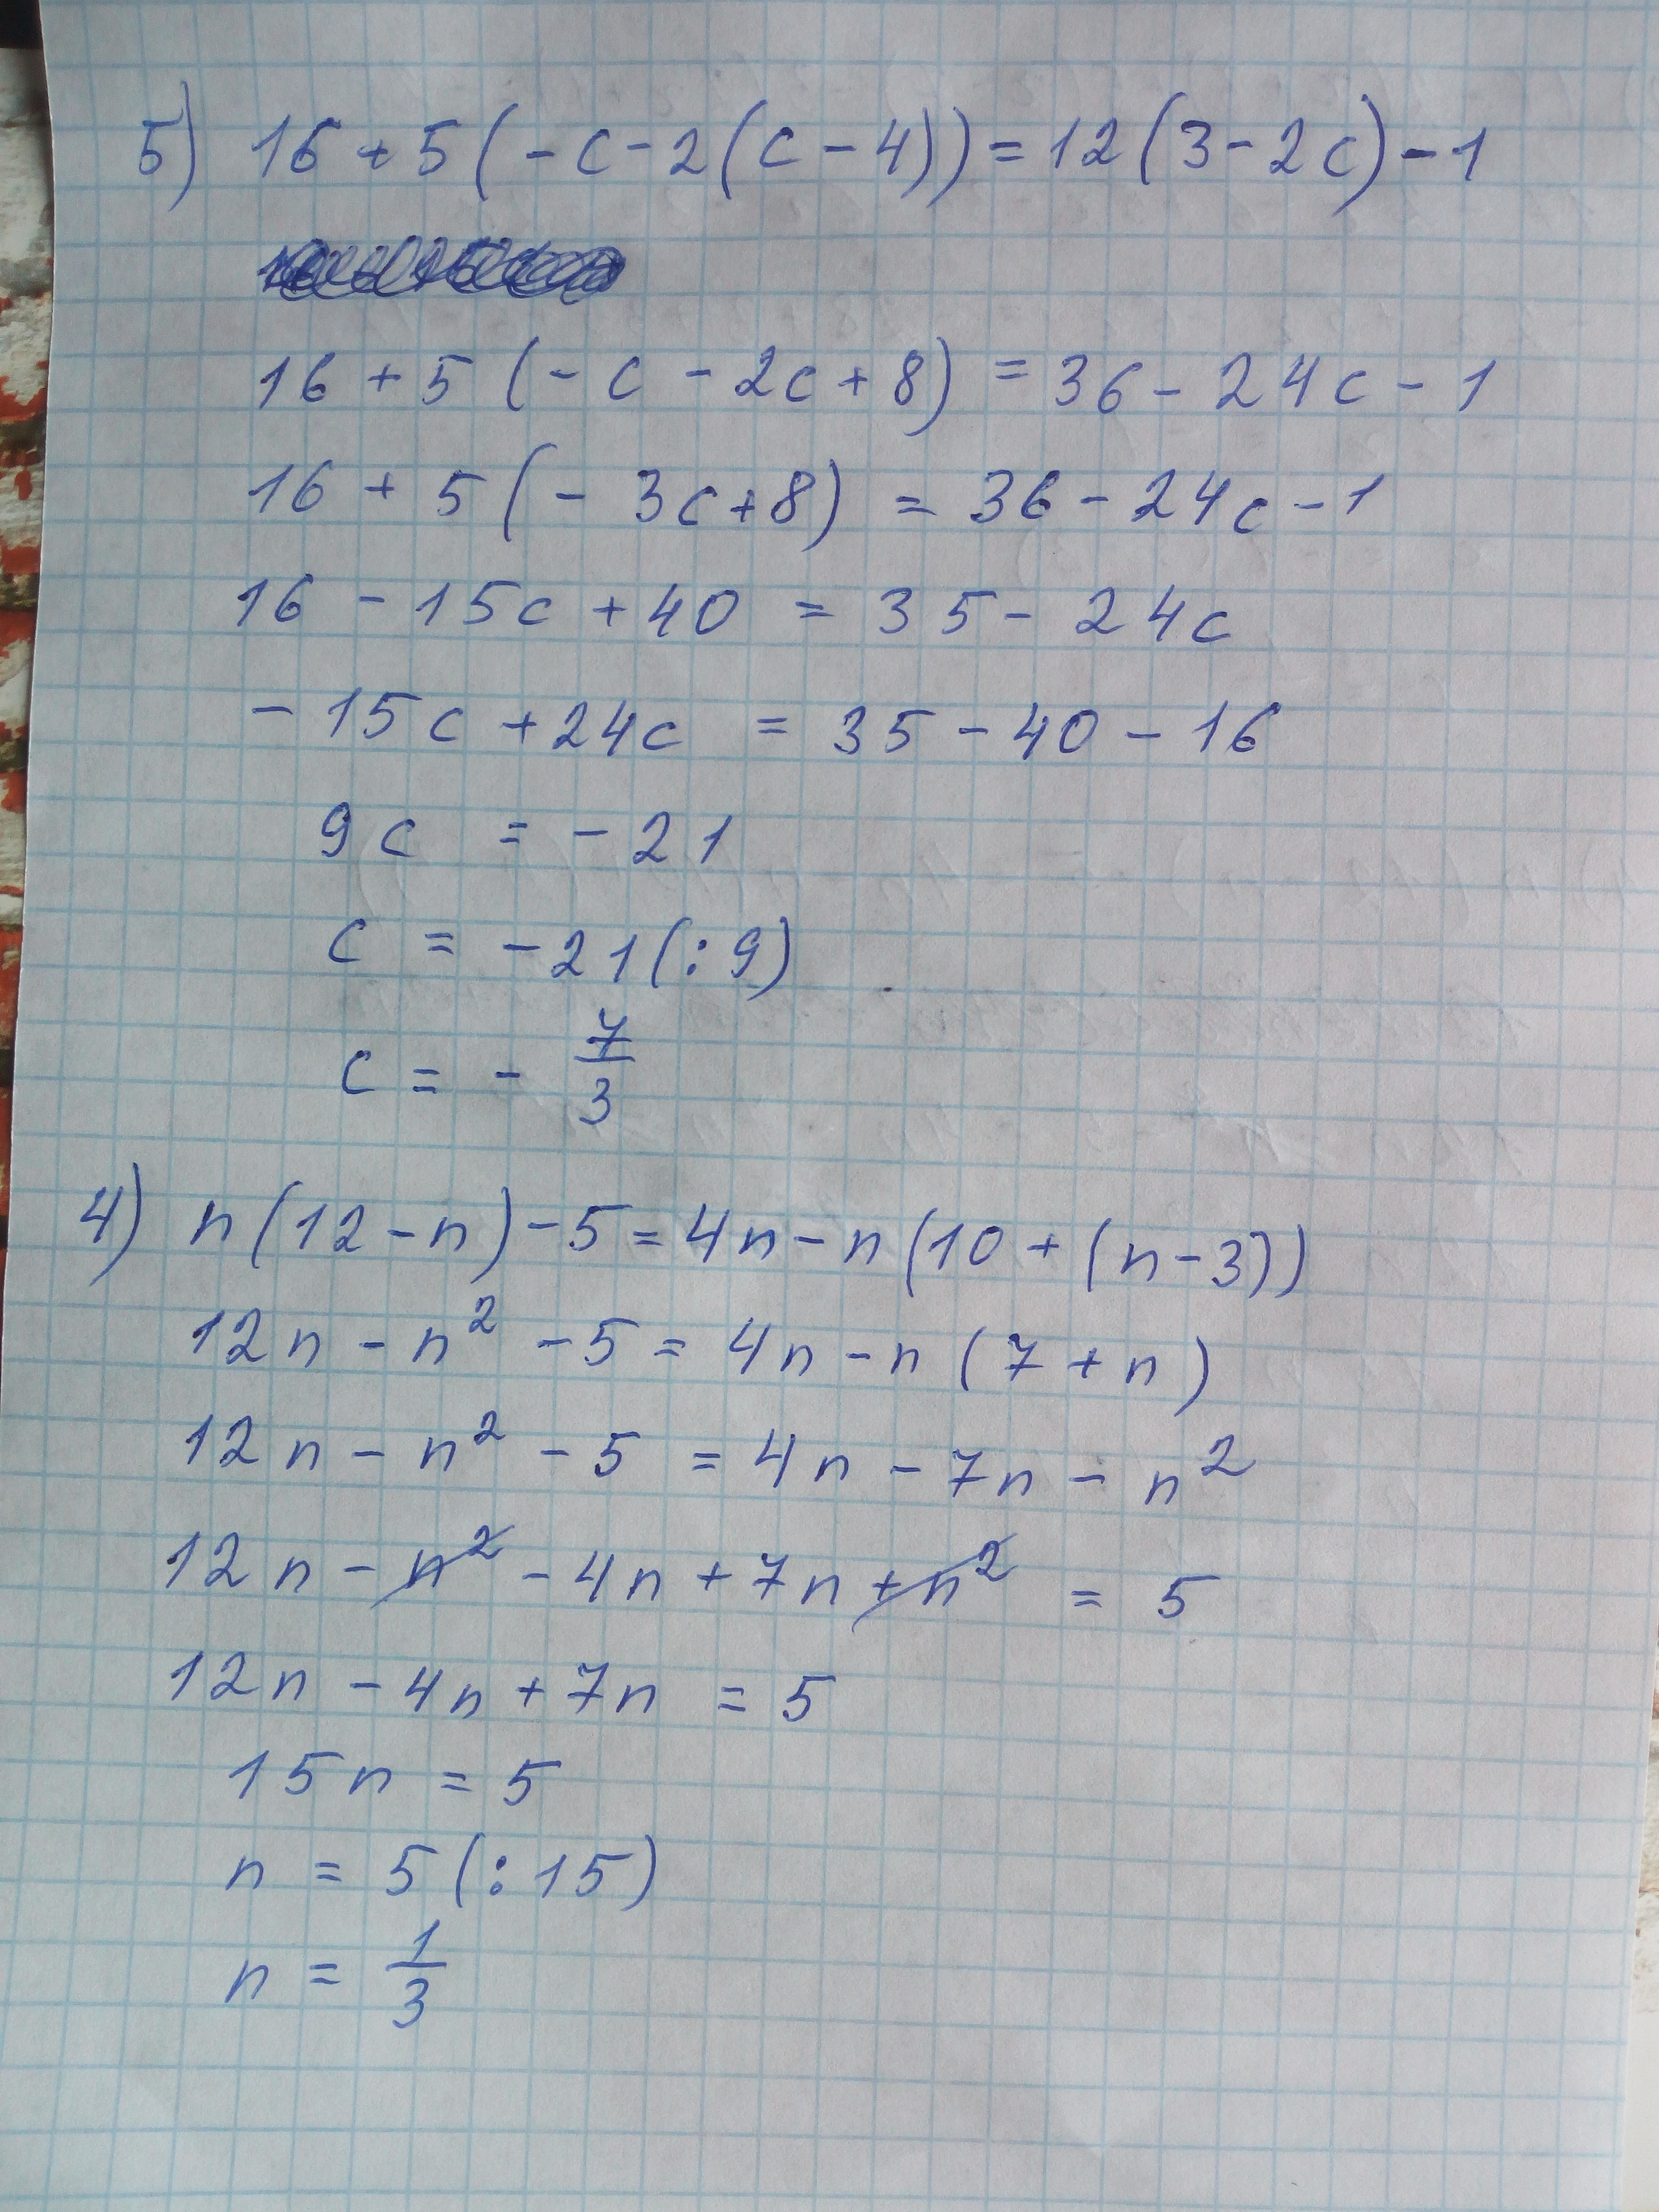 5) 16 + 5(-c-2(c-4))=12(3-2c)-1
16 + 5 (-c - 2c+8) = 36 - 24c - 1
16 + 5(- 3c+8) = 36-24c-1
16 - 15c + 40 = 35 - 24c
- 15c + 24c = 35 - 40 - 16
9c = - 21
c = -21(:9)
c = - 7/3
4) n(12-n)-5=4n-n(10+(n-3))
12n - n² - 5 = 4n - n (7 + n)
12n - n² - 5 = 4n - 7n - n²
12n - n² - 4n + 7n + n² = 5
12n - 4n + 7n = 5
15n = 5
n = 5(:15)
n = 1/3